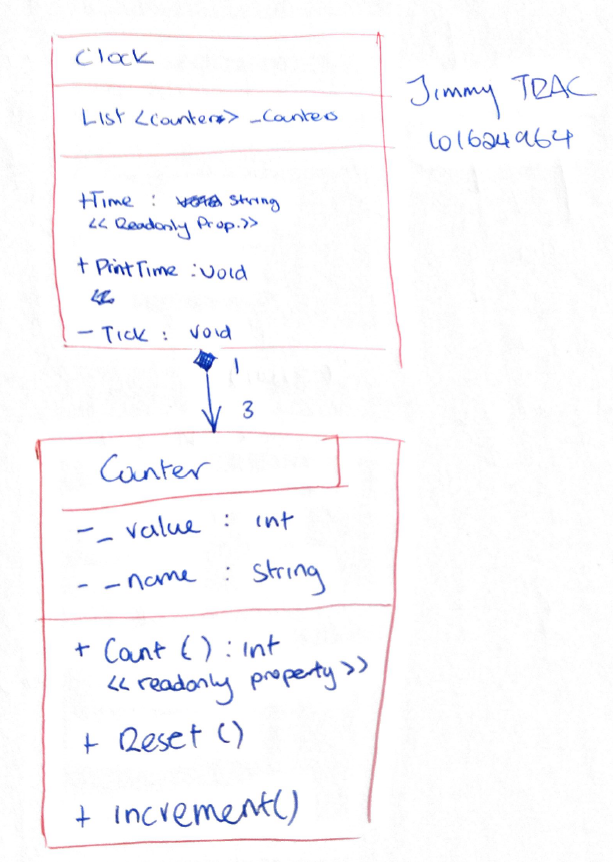 Clock
Jimmy TRAC
101624964
List <Counter> _Counters
+Time : string
<< Readonly Prop.>>
+ PrintTime : void
- Tick : void
1
3
Counter
- _ value : int
- _name : string
+ Count () : int
<< readonly property >>
+ Reset ()
+ increment()